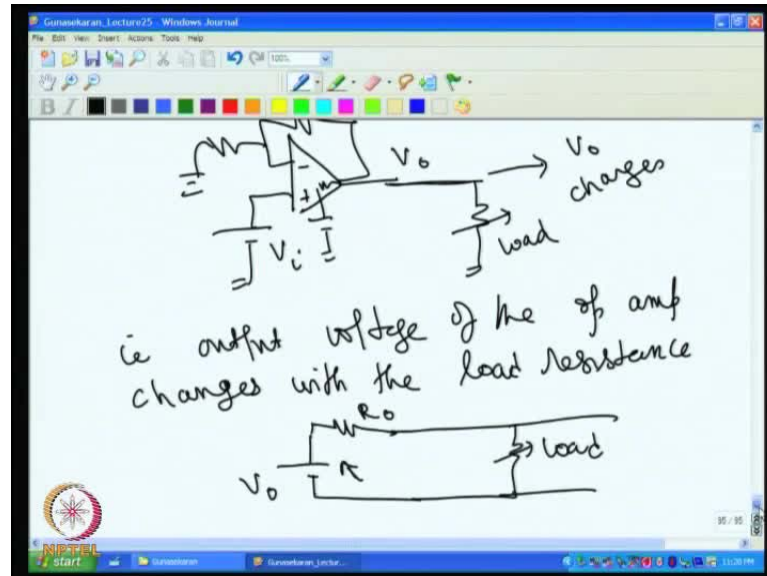 Gunasekaran_Lecture25 - Windows Journal
File Edit View Insert Actions Tools Help
100%
B I
Vo
Vo
changes
-
+
Vi
load
ie output voltage of the op amp
changes with the load resistance
Ro
load
Vo
95 / 95
NPTEL
start
Gunasekaran
Gunasekaran_Lectur...
11:20 PM